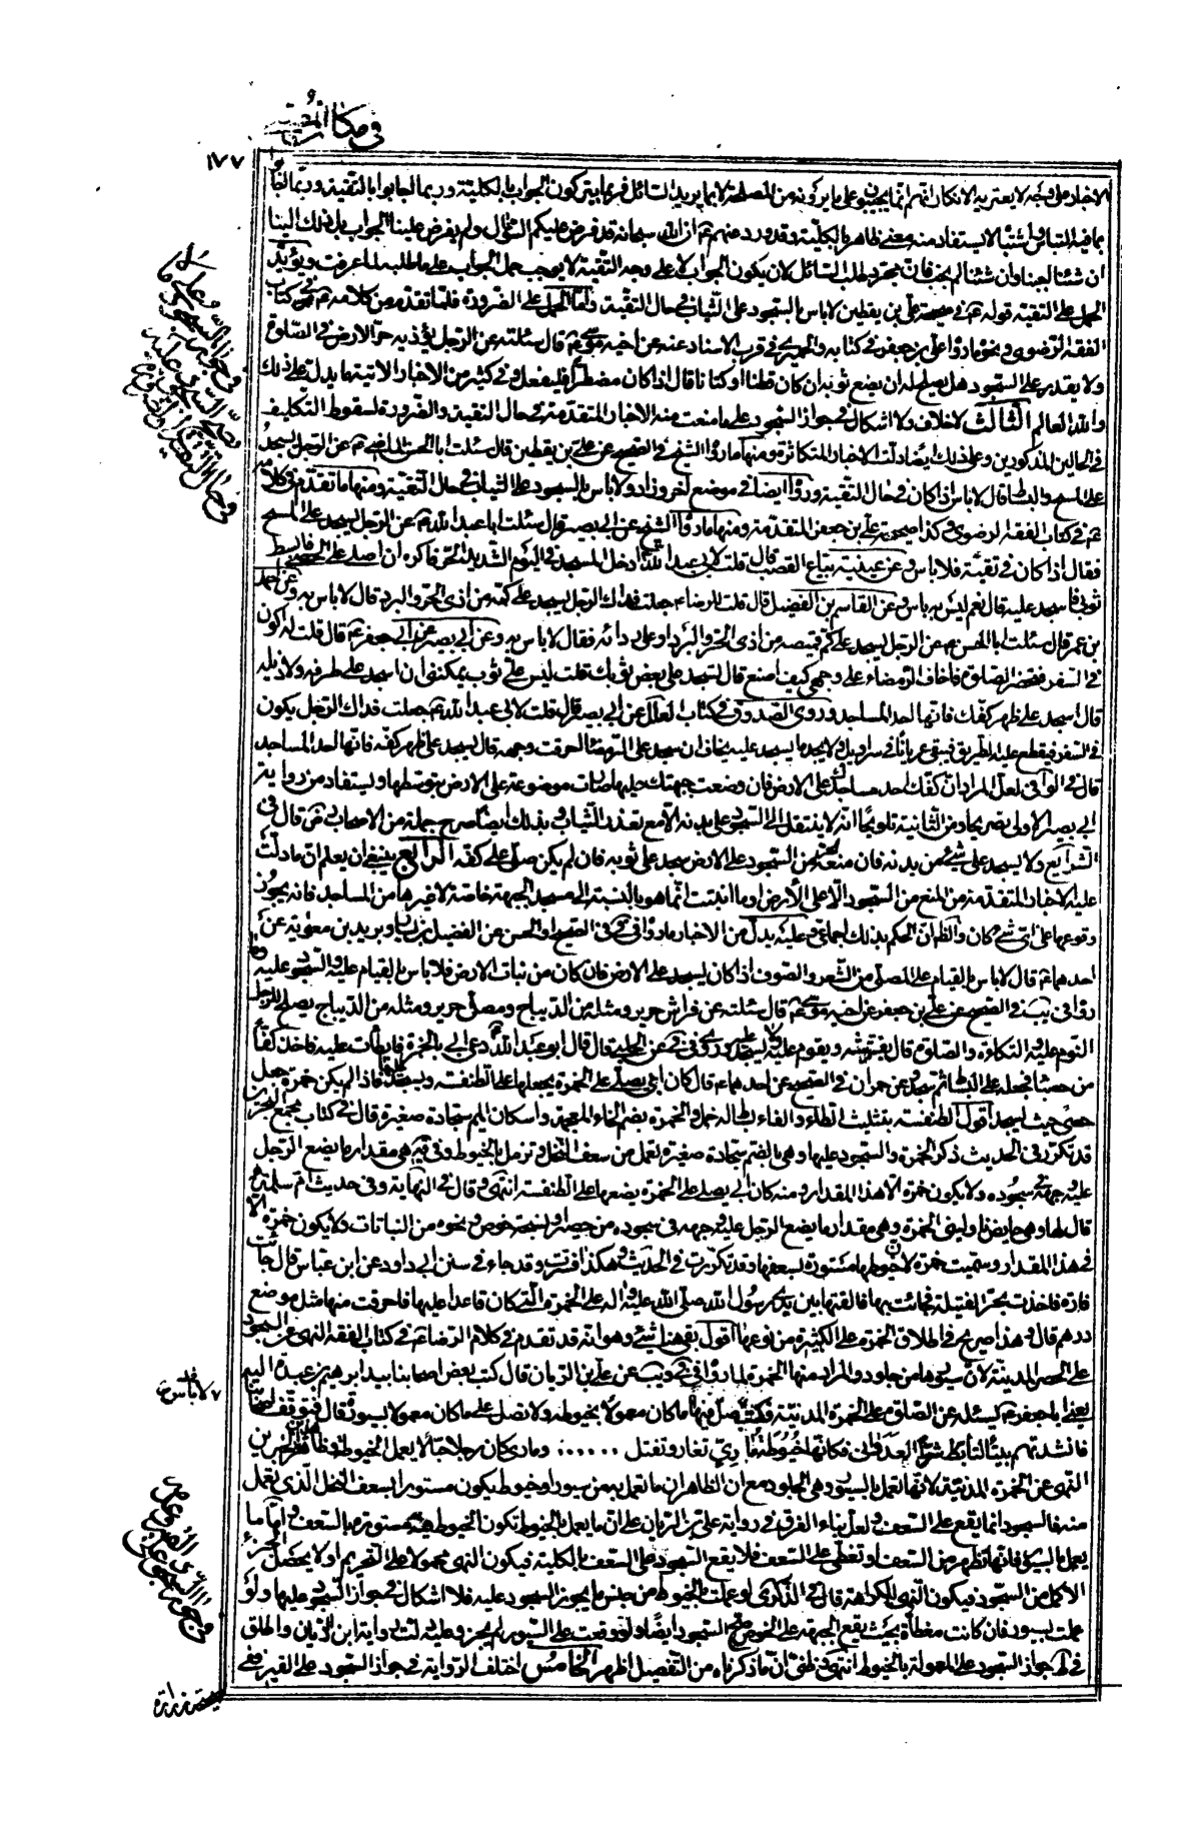 في مكان المصلي
١٧٧
الاخبار على وجه لا يعتريه الانكار انهم انما يجيبون على ما يرونه من المصلحة لا بما يريد السائل فربما يتركون الجواب بالكلية وربما اجابوا بالتقية وربما اجابوا
بما فيه التباس واشتباه لا يستفاد منه معنى ظاهر بالكلية وقد ورد عنهم ع ان الله سبحانه قد فرض عليكم السؤال ولم يفرض علينا الجواب بل ذلك الينا
ان شئنا اجبنا وان شئنا لم نجب فان مجرد طلب السائل لان يكون الجواب لا على وجه التقية لا يوجب حمل الجواب على ما طلبه لما عرفت ويؤيد
الحمل على التقية قوله ع في صحيحة علي بن يقطين لا باس بالسجود على الثياب في حال التقية واما الحمل على الضرورة فلما تقدم من كلامه ع في كتاب
الفقه الرضوي ونحوه ما رواه علي بن جعفر في كتابه والحميري في قرب الاسناد عنه عن اخيه موسى ع قال سئلته عن الرجل يؤذيه حر الارض في الصلوة
ولا يقدر على السجود هل يصلح له ان يضع ثوبه ان كان قطنا او كتانا قال اذا كان مضطرا فليفعل وفي كثير من الاخبار الاتية ما يدل على ذلك
والله العالم الثالث لا خلاف ولا اشكال في جواز السجود على ما منعت منه الاخبار المتقدمة في حال التقية والضرورة لسقوط التكليف
في الحالين المذكورين وعلى ذلك ايضا دلت الاخبار المتكاثرة ومنها ما رواه الشيخ في الصحيح عن علي بن يقطين قال سئلت ابا الحسن الماضي ع عن الرجل يسجد
على المسح والبساط قال لا باس اذا كان في حال التقية ورواه ايضا في موضع اخر وزاد ولا باس بالسجود على الثياب في حال التقية ومنها ما تقدم في كلامه
ع في كتاب الفقه الرضوي وكذا صحيحة علي بن جعفر المتقدمة ومنها ما رواه الشيخ عن ابي بصير قال سئلت ابا عبد الله ع عن الرجل يسجد على المسح
فقال اذا كان في تقية فلا باس وعن عيينة بياع القصب قال قلت لابي عبد الله ع ادخل المسجد في اليوم الشديد الحر فاكره ان اصلي على الحصى فابسط
ثوبي فاسجد عليه قال نعم ليس به باس وعن القاسم بن الفضيل قال قلت للرضا ع جعلت فداك الرجل يسجد على كمه من اذى الحر والبرد قال لا باس به وعن احمد
بن عمر قال سئلت ابا الحسن ع عن الرجل يسجد على كم قميصه من اذى الحر والبرد او على ردائه فقال لا باس به وعن ابي بصير عن ابي جعفر ع قال قلت له اكون
في السفر فتحضر الصلوة فاخاف الرمضاء على وجهي كيف اصنع قال تسجد على بعض ثوبك قلت ليس علي ثوب يمكنني ان اسجد على طرفه ولا ذيله
قال اسجد على ظهر كفك فانها احد المساجد وروى الصدوق في كتاب العلل عن ابي بصير قال قلت لابي عبد الله ع جعلت فداك الرجل يكون
في السفر فيقطع عليه الطريق فيبقى عريانا في سراويل ولا يجد ما يسجد عليه يخاف ان سجد على الرمضاء احرقت وجهه قال يسجد على ظهر كفه فانها احد المساجد
قال في الوافي لعل المراد ان كفك احد مساجدك على الارض فان وضعت جبهتك عليها صارت موضوعة على الارض بتوسطها ويستفاد من رواية
ابي بصير الاولى تصريحا ومن الثانية تلويحا انه لا ينتقل الى السجود على بدنه الا مع تعذر الثياب وبذلك ايضا صرح جملة من الاصحاب ع قال في
الشرايع ولا يسجد على شئ من بدنه فان منعه الحر من السجود على الارض سجد على ثوبه فان لم يكن صلى على كفه الرابع ينبغي ان يعلم ان ما دلت
عليه الاخبار المتقدمة من المنع من السجود الا على الارض او ما انبتت انما هو بالنسبة الى مسجد الجبهة خاصة لا غيرها من المساجد فانه يجوز
وقوعها على اي شئ كان والظ ان الحكم بذلك اجماعي وعليه يدل من الاخبار ما رواه في في الصحيح او الحسن عن الفضيل بن يسار وبريد بن معوية عن
احدهما ع قال لا باس بالقيام على المصلى من الشعر والصوف اذا كان يسجد على الارض فان كان من نبات الارض فلا باس بالقيام عليه والسجود عليه وما
رواه في يب في الصحيح عن علي بن جعفر عن اخيه موسى ع قال سئلته عن فراش حرير ومثله من الديباج ومصلى حرير ومثله من الديباج يصلح للرجل
النوم عليه والتكاءة والصلوة قال يفترشه ويقوم عليه ولا يسجد عليه وروى في في عن الحلبي قال قال ابو عبد الله ع دعى ابي بالخمرة فابطأت عليه فاخذ كفا
من حصا فجعله على البساط ثم سجد وعن حمران في الصحيح عن احدهما ع قال كان ابي يصلي على الخمرة يجعلها على الطنفسة ويسجد عليها فاذا لم يكن خمرة جعل
حصى حيث يسجد اقول الطنفسة بتثليث الطاء والفاء بساط له خمل والخمرة بضم الخاء المعجمة واسكان الميم سجادة صغيرة قال في كتاب مجمع البحرين
قد تكرر في الحديث ذكر الخمرة والسجود عليها وهي بالضم سجادة صغيرة تعمل من سعف النخل وتزمل بالخيوط وفي يه هي مقدار ما يضع الرجل
عليه وجهه في سجوده ولا يكون خمرة الا هذا المقدار ومنه كان ابي يصلي على الخمرة يضعها على الطنفسة انتهى وقال في النهاية وفي حديث ام سلمة
قال لها وهي حايض ناوليني الخمرة وهي مقدار ما يضع الرجل عليه وجهه في سجوده من حصير او نسجة خوص ونحوه من النباتات ولا يكون خمرة الا
في هذا المقدار وسميت خمرة لان خيوطها مستورة بسعفها وقد تكررت في الحديث هكذا فسرت وقد جاء في سنن ابي داود عن ابن عباس قال جائت
فارة فاخذت تجر الفتيلة فجائت بها فالقتها بين يدي رسول الله صلى الله عليه واله على الخمرة التي كان قاعدا عليها فاحرقت منها مثل موضع
درهم قال وهذا صريح في اطلاق الخمرة على الكثيرة من نوعها اقول بقي هنا شئ وهو انه قد تقدم في كلام الرضا ع في كتاب الفقه النهي عن السجود
على الحصر المدينة لان سيورها من جلود والمراد منها الخمرة لما رواه في في ويب عن علي بن الريان قال كتب بعض اصحابنا بيد ابراهيم بن عقبة اليه
يعني ابا جعفر ع يسئله عن الصلوة على الخمرة المدنية فكتب صل فيها ما كان معمولا بخيوطه ولا تصل على ما كان معمولا بسيورة قال فتوقف اصحابنا
فانشدتهم بيتا لتابط شرا العدواني فكانها خيوطة ماري تغار وتفتل ...... وماري كان رجلا حبالا يعمل الخيوط وظاهر الخبرين
النهي عن الخمرة المدنية لانها تعمل بالسيور وهي الجلود مع ان الظاهر ان ما تعمل به من سيور او خيوط يكون مستورا بسعف النخل الذي يعمل
منه فالسجود انما يقع على السعف ولعل بناء الفرق في رواية علي بن الريان على ان ما يعمل بالخيوط تكون الخيوط فيه مستورة بالسعف واما ما
يعمل بالسيور فانها تظهر من السعف او تغطي على السعف فلا يقع السجود على السعف بالكلية فيكون النهي محمولا على التحريم او لا يحصل الجزء
الاكمل من السجود فيكون النهي للكراهة قال في الذكرى لو عملت بالخيوط من جنس ما يجوز السجود عليه فلا اشكال في جواز السجود عليها ولو
عملت بسيور فان كانت مغطاة بحيث يقع الجبهة على الخوص صح السجود ايضا ولو وقعت على السيور لم يجز وعليه دلت رواية ابن الريان واطلق
في ط جواز السجود على المعمولة بالخيوط انتهى وظني ان ما ذكرناه من التفصيل اظهر الخامس اختلف الرواية في جواز السجود على القير ففي